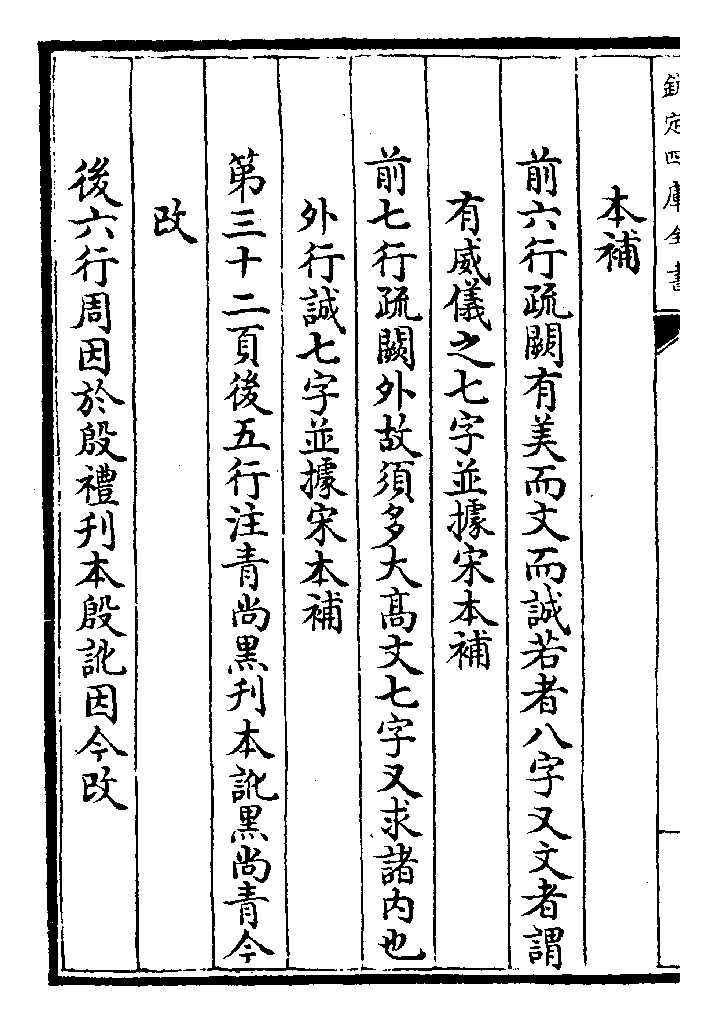 欽定四庫全書
本補
前六行疏闕有美而文而誠若者八字又文者謂
有威儀之七字並據宋本補
前七行疏闕外故須多大高文七字又求諸内也
外行誠七字並據宋本補
第三十二頁後五行注青尚黒刋本訛黒尚青今
改
後六行周因於殷禮刋本殷訛因今改